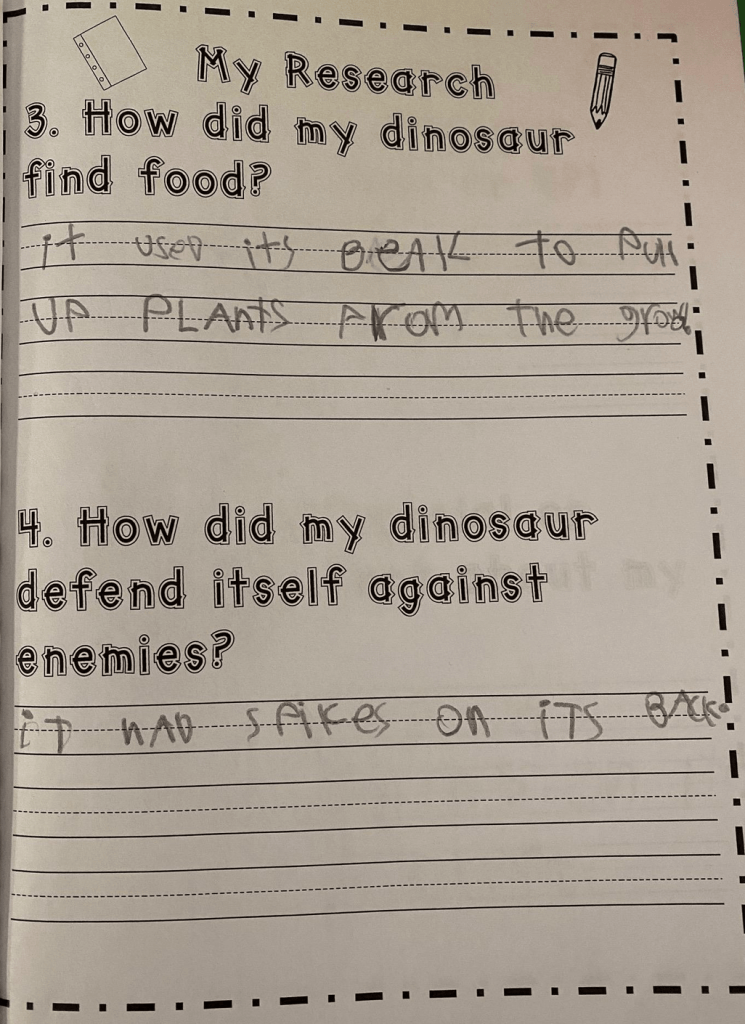 My Research
3. How did my dinosaur
find food?
it used its BeAK to PUll
UP PLAntS FROM the
4. How did my dinosaur
defend itself against
enemies?
iT HAD SPiKes on iTS BACK.